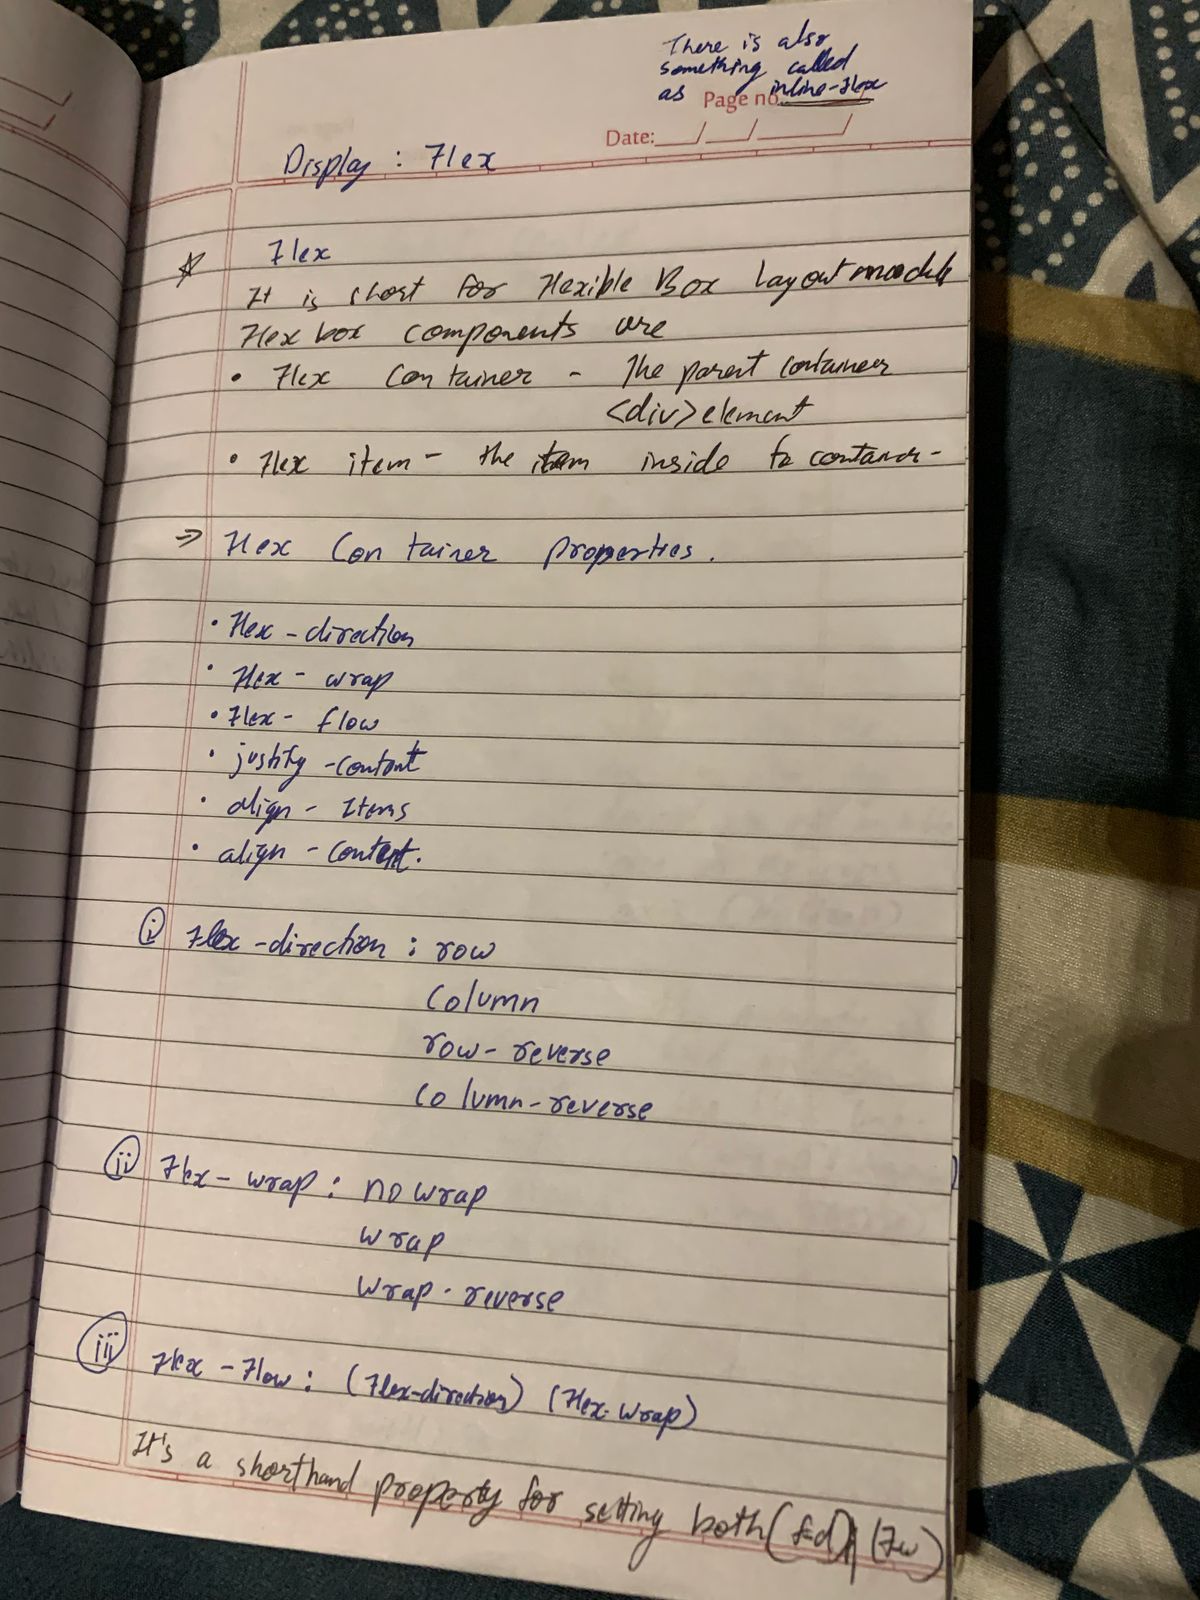 There is also
something called
as inline-flex
Page no.
Date:
Display : Flex
Flex
It is short for Flexible Box Layout module
Flex box components are
• Flex Container - The parent container
<div> element
• Flex item - the item inside
⇒ Flex Container properties.
• Flex - direction
• Flex - wrap
• Flex - flow
• justify - content
• align - Items
• align - content.
i Flex - direction : row
Column
row - reverse
Column - reverse
ii Flex - wrap : no wrap
wrap
wrap - reverse
iii Flex - Flow : (Flex-direction) (Flex-wrap)
It's a shorthand property for setting both (f-d) (Fw)